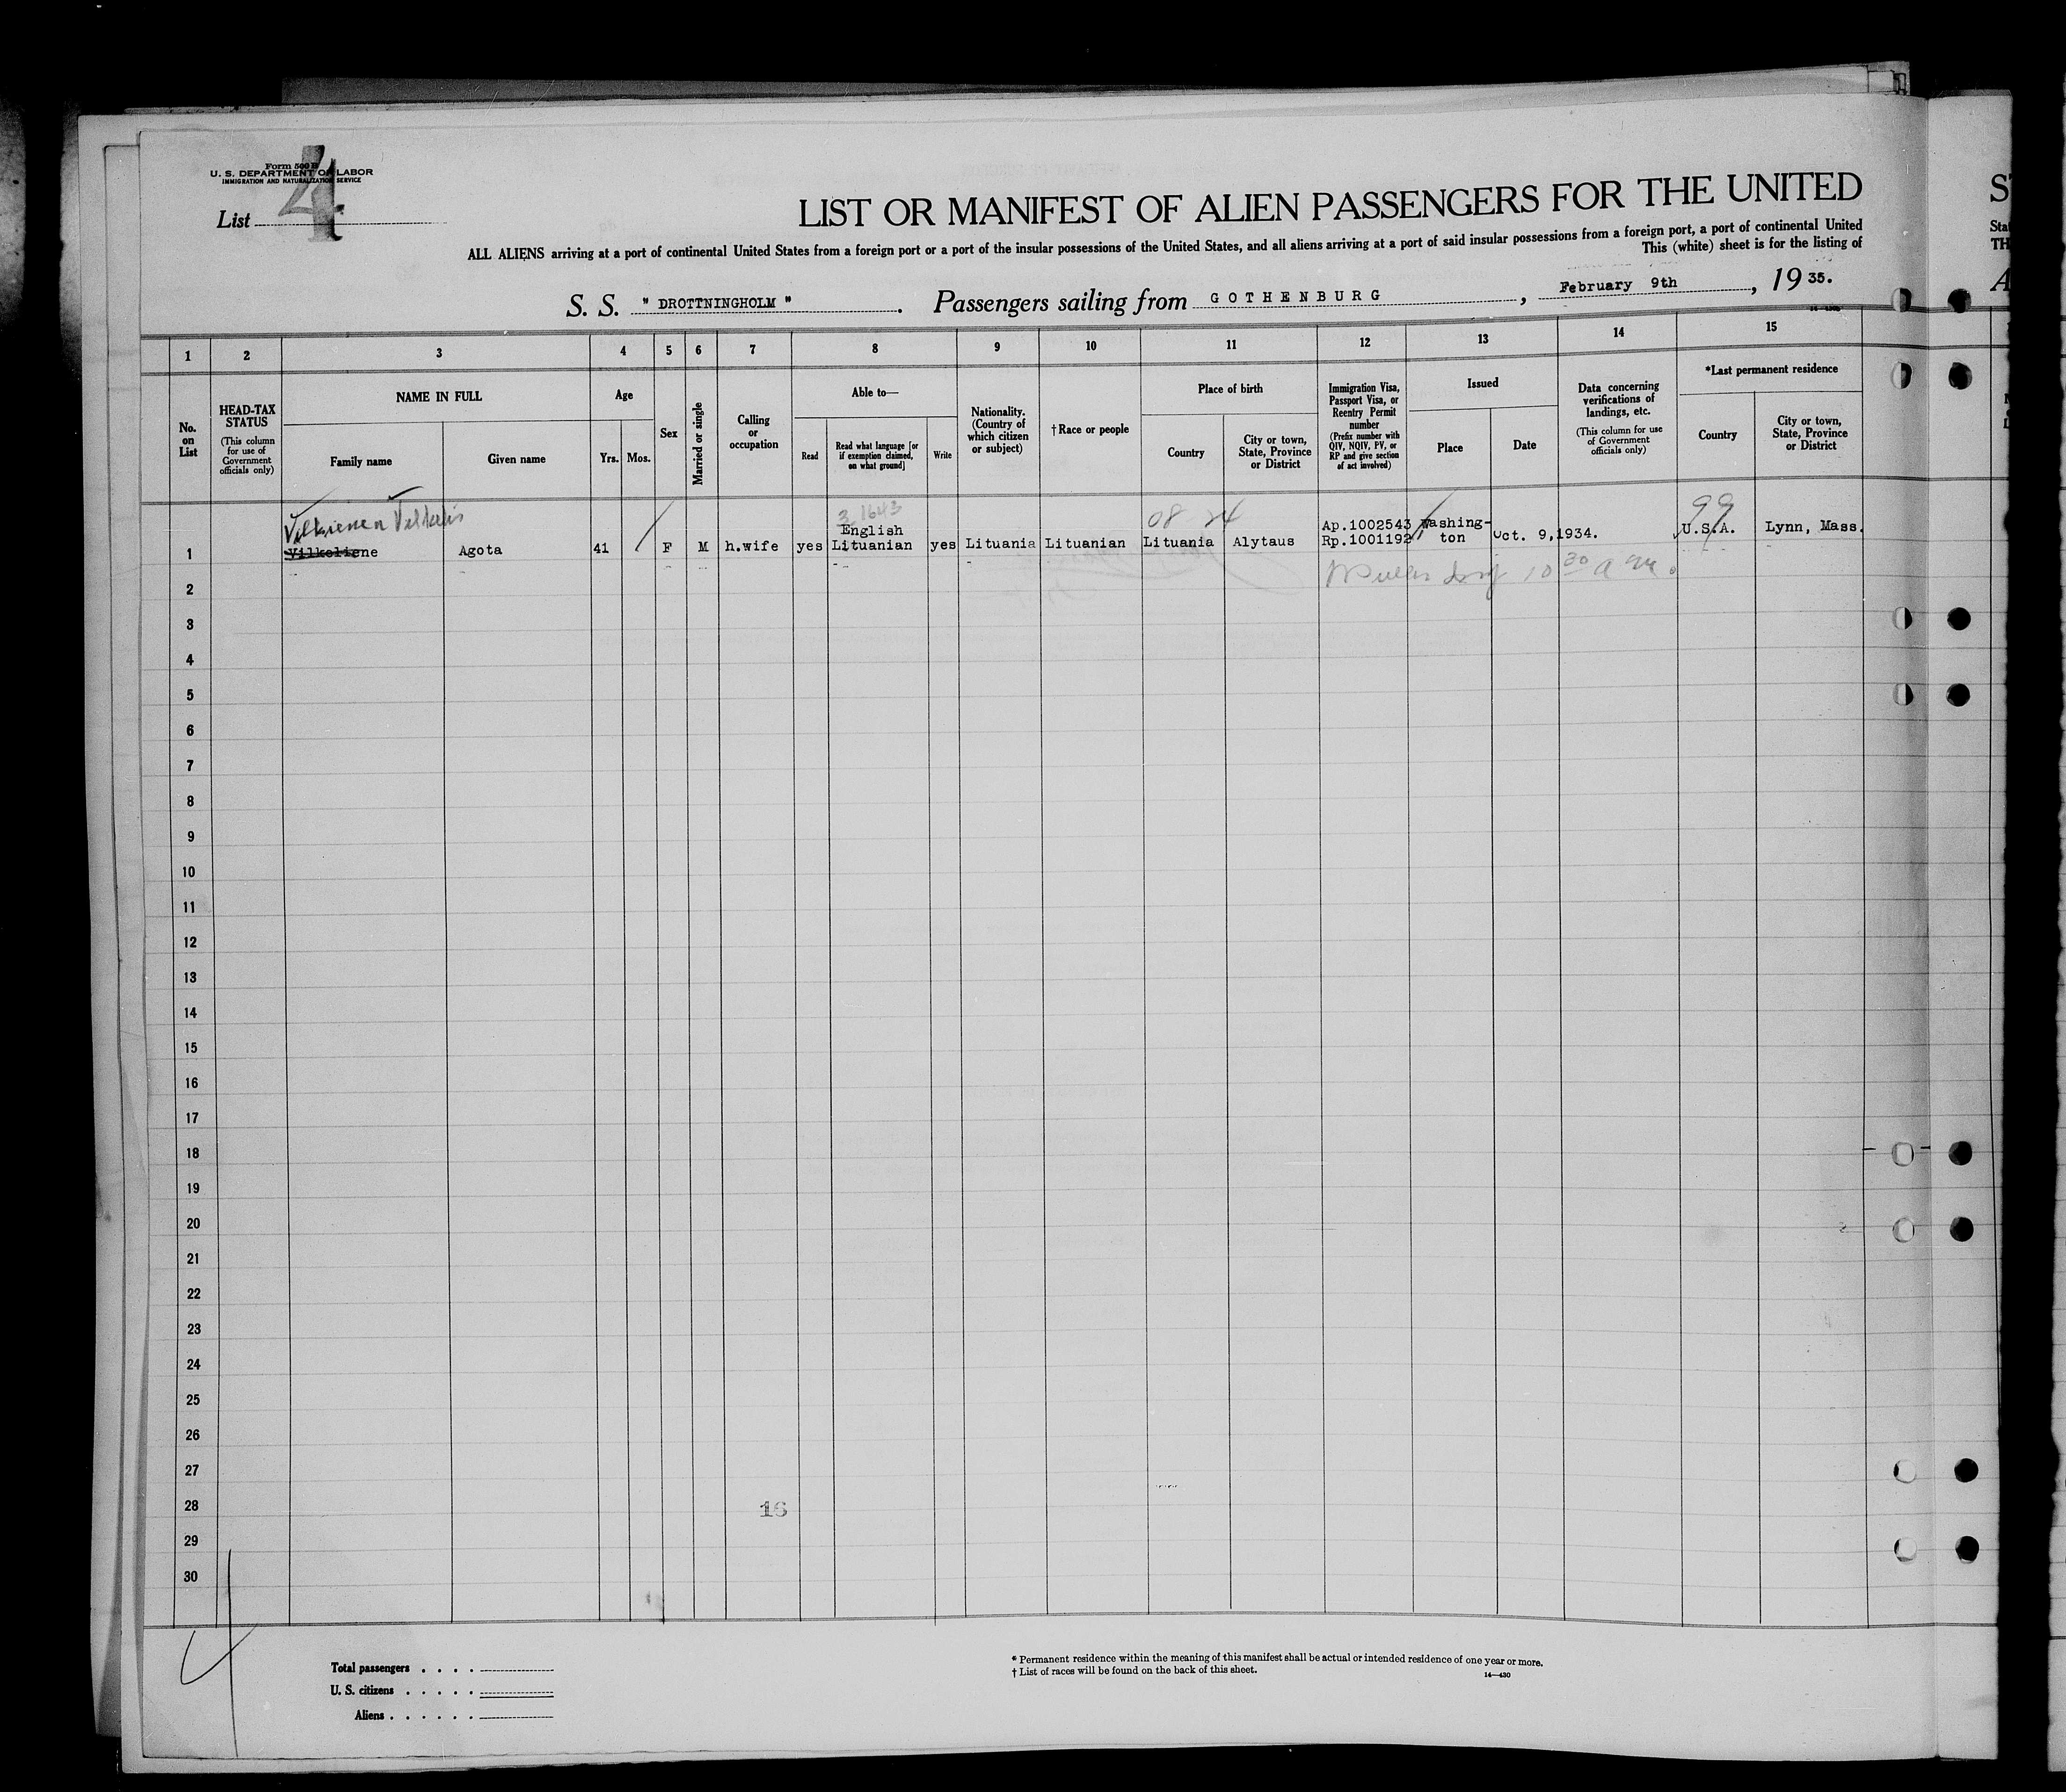 Form 500 B
U. S. DEPARTMENT OF LABOR
IMMIGRATION AND NATURALIZATION SERVICE
List 4
LIST OR MANIFEST OF ALIEN PASSENGERS FOR THE UNITED
ALL ALIENS arriving at a port of continental United States from a foreign port or a port of the insular possessions of the United States, and all aliens arriving at a port of said insular possessions from a foreign port, a port of continental United
This (white) sheet is for the listing of
S. S. " DROTTNINGHOLM ". Passengers sailing from GOTHENBURG, February 9th, 19 35.
1 2 3 4 5 6 7 8 9 10 11 12 13 14 15
No. on List
HEAD-TAX STATUS
(This column for use of Government officials only)
NAME IN FULL
Family name
Given name
Age
Yrs.
Mos.
Sex
Married or single
Calling or occupation
Able to—
Read
Read what language [or if exemption claimed, on what ground]
Write
Nationality. (Country of which citizen or subject)
†Race or people
Place of birth
Country
City or town, State, Province or District
Immigration Visa, Passport Visa, or Reentry Permit number
(Prefix number with QIV, NQIV, PV, or RP and give section of act involved)
Issued
Place
Date
Data concerning verifications of landings, etc.
(This column for use of Government officials only)
*Last permanent residence
Country
City or town, State, Province or District
3 1643
08 24
99
English
Ap.1002543 Washing-
U.S.A. Lynn, Mass.
1 Vilkeliene Agota 41 F M h.wife yes Lituanian yes Lituania Lituanian Lituania Alytaus Rp.1001192 ton Oct. 9,1934.
10 30 a m.
2
3
4
5
6
7
8
9
10
11
12
13
14
15
16
17
18
19
20
21
22
23
24
25
26
27
28
16
29
30
4
Total passengers . . . .
U. S. citizens . . . . .
Aliens . . . . . .
* Permanent residence within the meaning of this manifest shall be actual or intended residence of one year or more.
† List of races will be found on the back of this sheet.
14—430
ST
Sta
TH
A